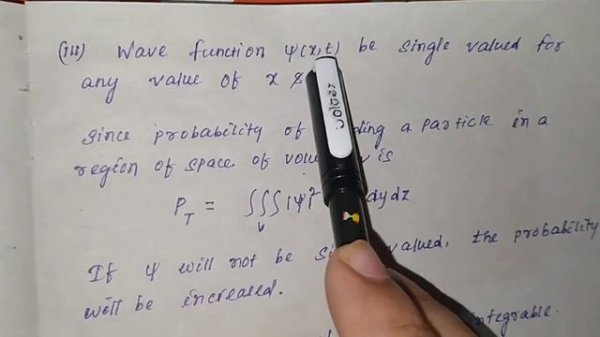 (iii) Wave function ψ(x,t) be single valued for
any value of x &
since probability of ding a particle in a
region of space of volu v is
P_T = ∫∫∫_V |ψ|² dydz
If ψ will not be si valued, the probability
will be increased.
integrable.